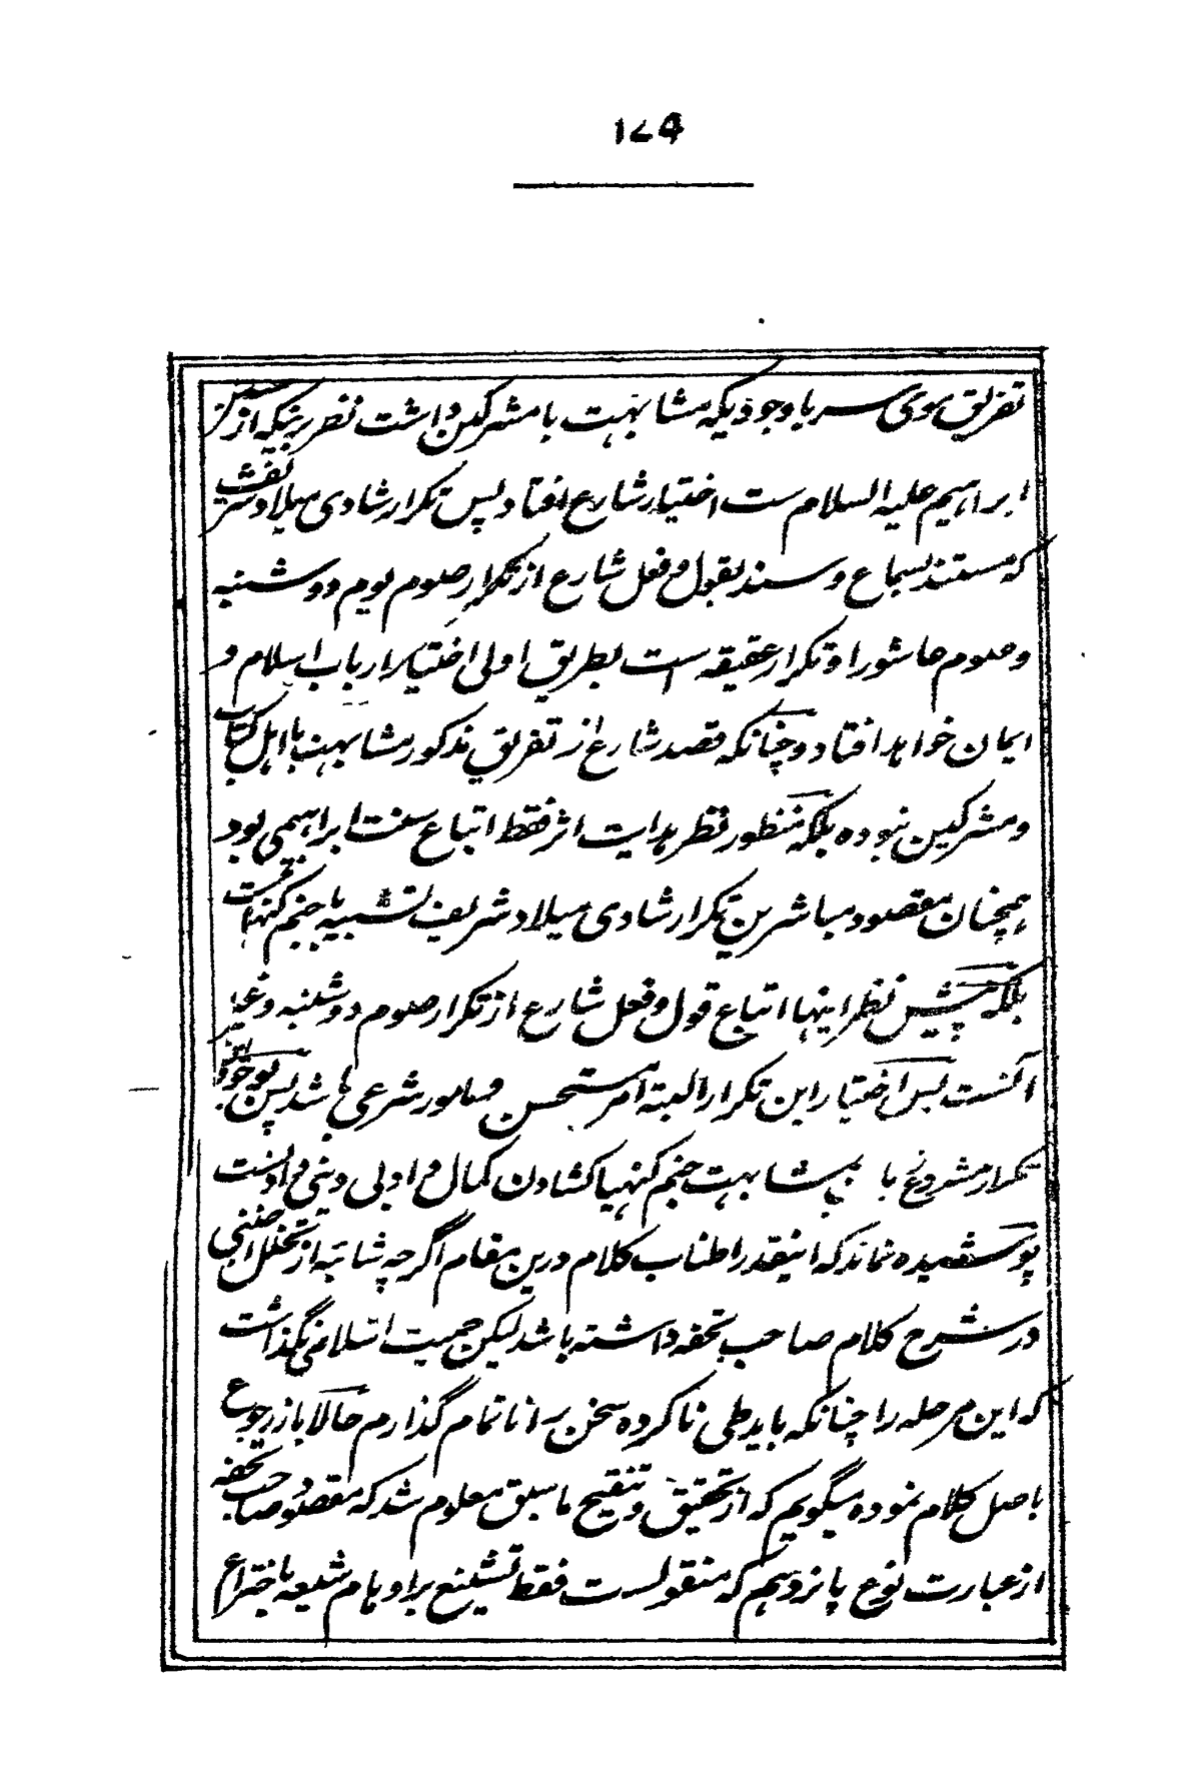 ۱۷۹
تفریق موی سر باوجودیکه مشابهت با مشرکین داشت نظر برینکه از سنن
ابراهیم علیه السلام ست اختیار شارع افتاد پس تکرار شادی میلاد شریف
که مستند بسماع و سند بقول و فعل شارع از تکرار صوم یوم دوشنبه
و صوم عاشورا و تکرار عقیقه ست بطریق اولی اختیار ارباب اسلام و
ایمان خواهد افتاد و چنانکه قصد شارع از تفریق مذکور مشابهت با اهل کتاب
و مشرکین نبوده بلکه منظور نظر هدایت اثر فقط اتباع سنت ابراهیمی بود
همچنان مقصود مباشرین تکرار شادی میلاد شریف تشبیه با جنم کنهیا نیست
بلکه پیش نظر اینها اتباع قول و فعل شارع از تکرار صوم دوشنبه و غیره
آنست پس اختیار این تکرار البته امر مستحسن و مامور شرعی باشد پس
تکرار مشروع با مشابهت جنم کنهیا کشادن کمال و اولی دینی و
پوشیده نماند که اینقدر اطناب کلام درین مقام اگرچه شائبه از تخلل اجنبی
در شرح کلام صاحب تحفه داشته باشد لیکن حمیت اسلامی نگذاشت
که این مرحله را چنانکه باید طی ناکرده سخن را ناتمام گذارم حالا باز رجوع
باصل کلام نموده میگویم که از تحقیق و تنقیح ما سبق معلوم شد که مقصود صاحب تحفه
از عبارت نوع پانزدهم که منقولست فقط تشنیع بر اوهام شیعه باختراع